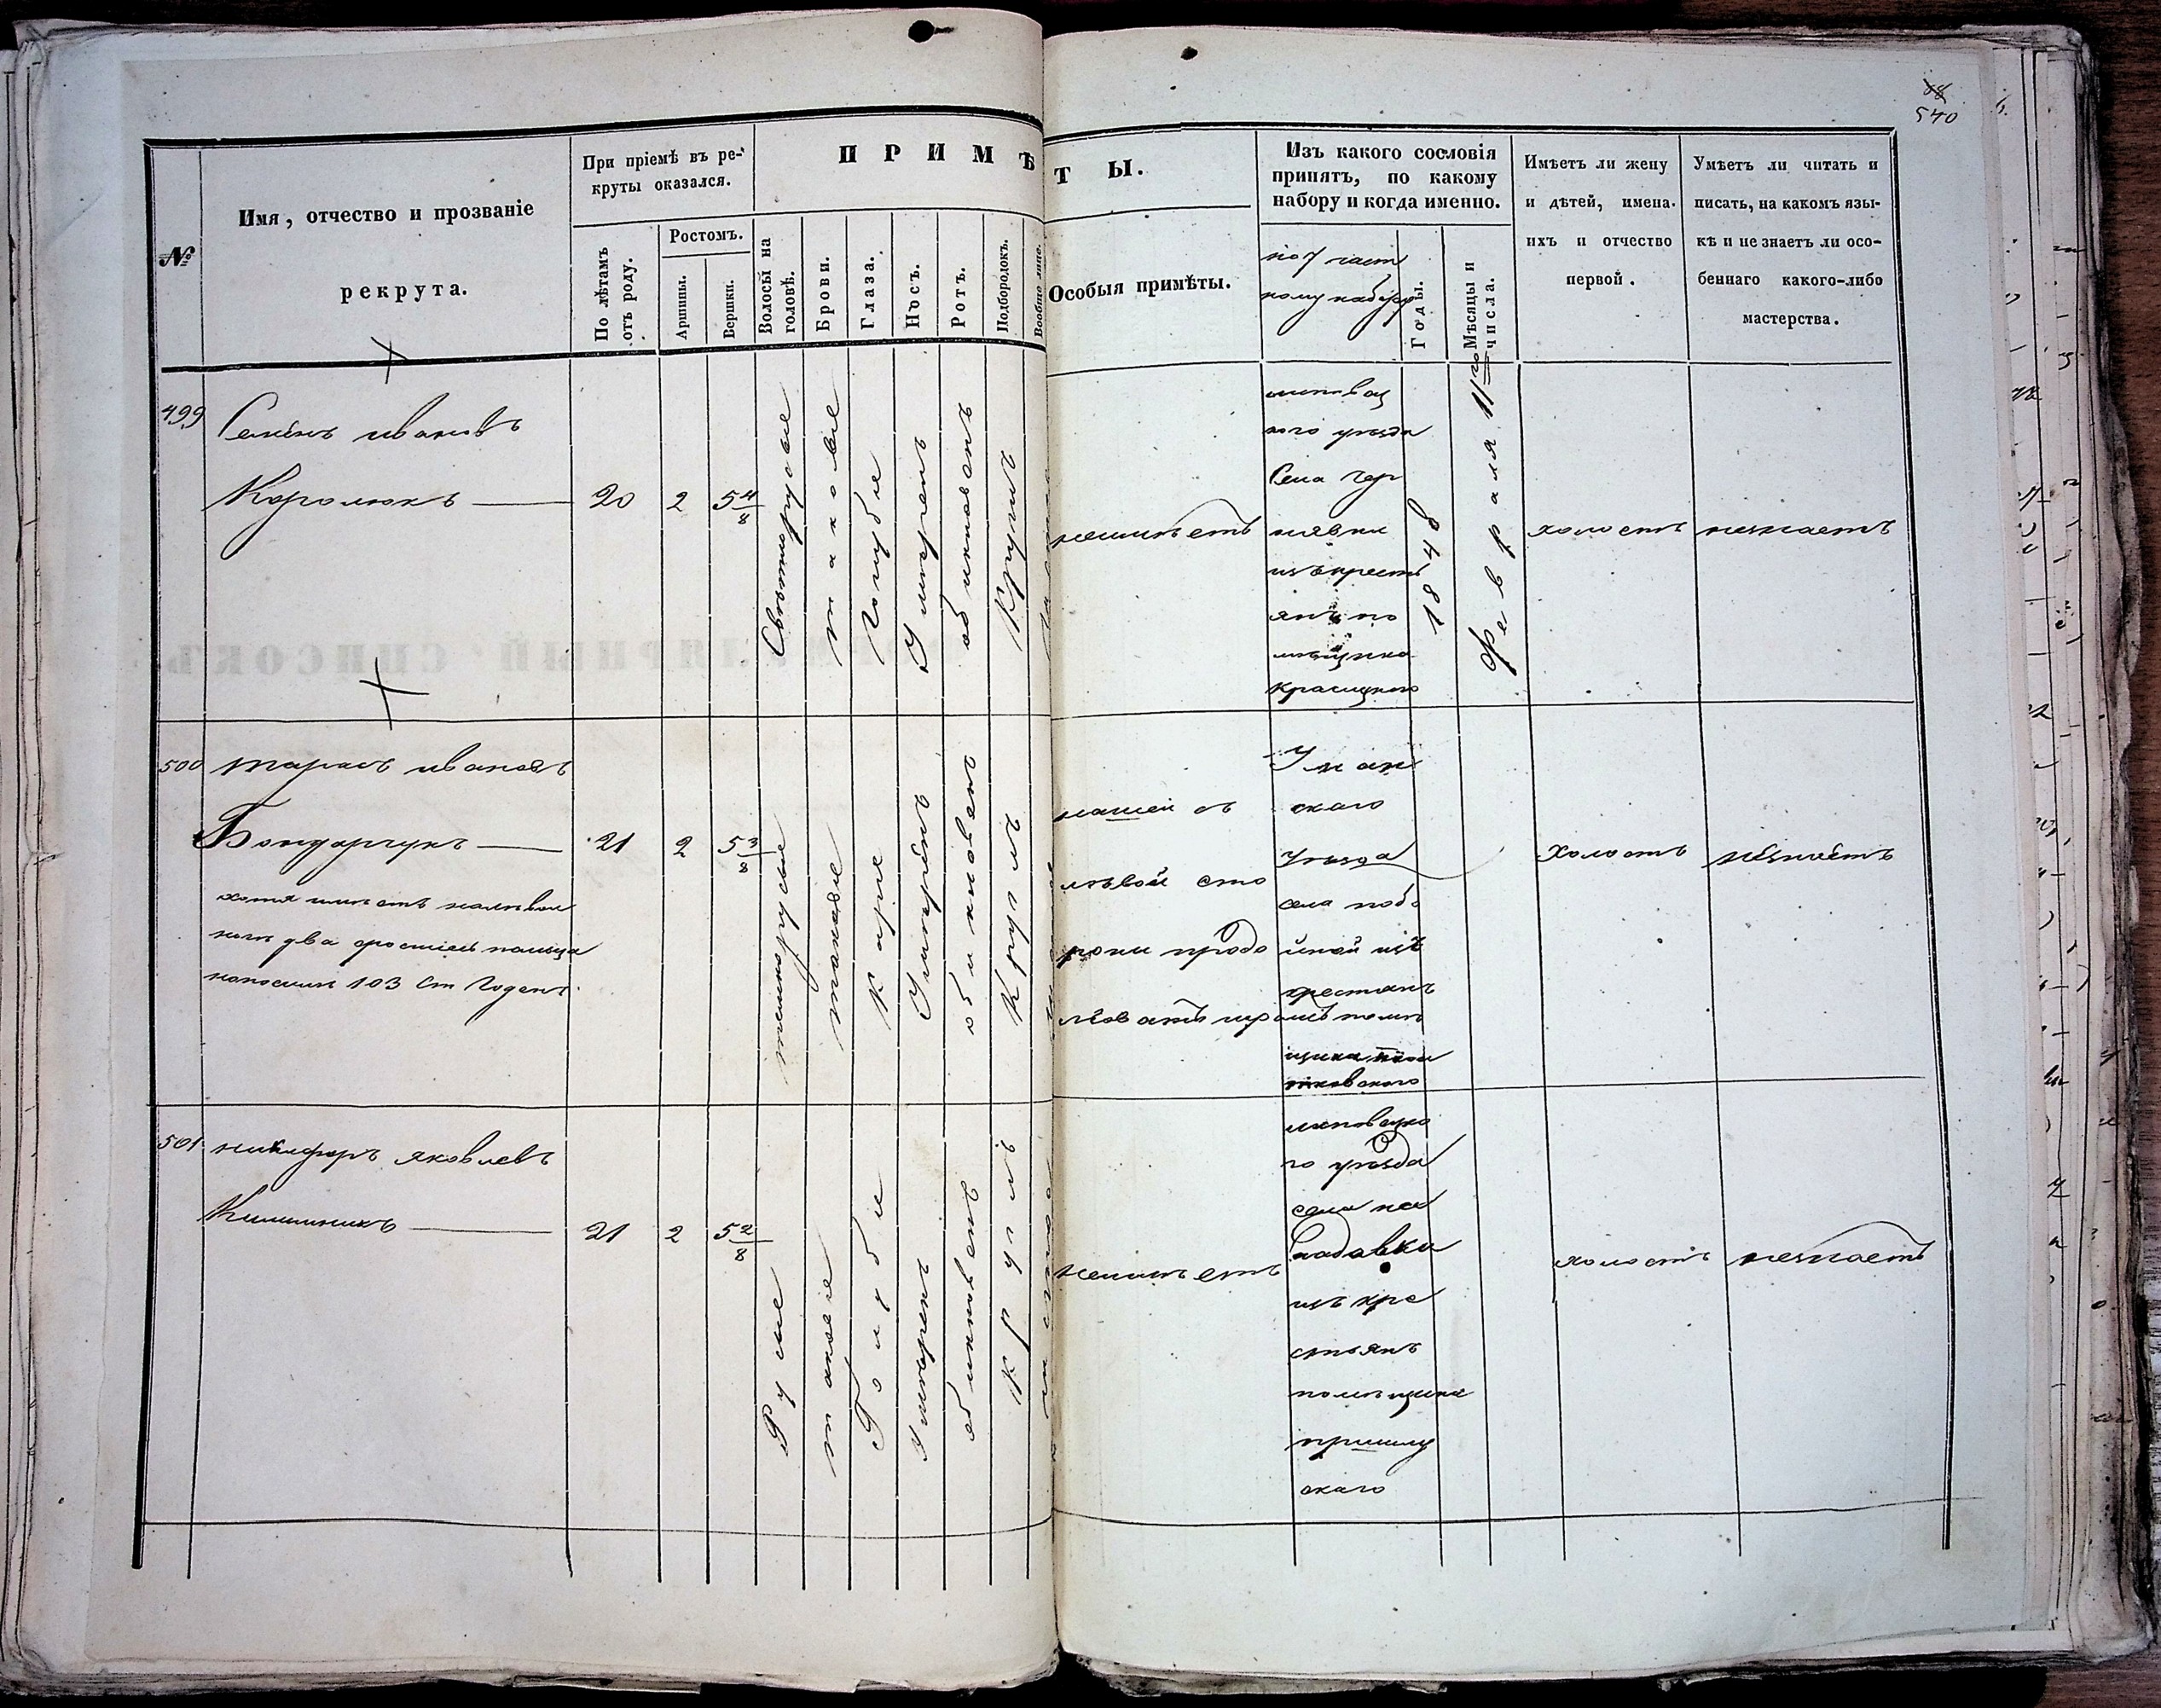 88
540
№
Имя, отчество и прозваніе
рекрута.
При пріемѣ въ ре-
круты оказался.
По лѣтамъ
отъ роду.
Ростомъ.
Аршины.
Вершки.
ПРИМѢ
ТЫ.
Волосы на
головѣ.
Брови.
Глаза.
Носъ.
Ротъ.
Подбородокъ.
Вообще лицо.
Особыя примѣты.
Изъ какого сословія
принятъ, по какому
набору и когда именно.
по 7 част
ному набору
Годы.
Мѣсяцы и
числа.
Имѣетъ ли жену
и дѣтей, имена
ихъ и отчество
первой.
Умѣетъ ли читать и
писать, на какомъ язы-
кѣ и не знаетъ ли осо-
беннаго какого-либо
мастерства.
499
Семенъ ивановъ
Королюкъ
20
2
5 4/8
Свѣтлорусые
таковые
Голубые
Умѣренъ
обыкновенъ
Кругилъ
неимѣетъ
липовец
кого уѣзда
Села Чер
нявки
изъ крест
янъ по
мѣщика
Красицкого
1848
Февраля 11го
холостъ
незнаетъ
500
тарасъ ивановъ
Бондарчукъ
хотя имѣетъ на лѣвой
ногѣ два сросшись пальца
но посилѣ 103 Ст Годенъ
21
2
5 3/8
темнорусые
таковые
Каріе
Умѣренъ
обыкновенъ
Круглъ
нашеи съ
лѣвой сто
роны продо
лговатъ шрамъ
Уман
скаго
Уѣзда
села побо
йной изъ
крестянъ
помѣ
щика
холостъ
незнаетъ
501
никифоръ яковлевъ
21
2
5 2/8
Русые
таковые
Голубые
Умѣренъ
обыкновенъ
Круглъ
неимѣетъ
липовецко
го уѣзда
села на
Садавки
изъ кре
стьянъ
помѣщика
скаго
холостъ
незнаетъ